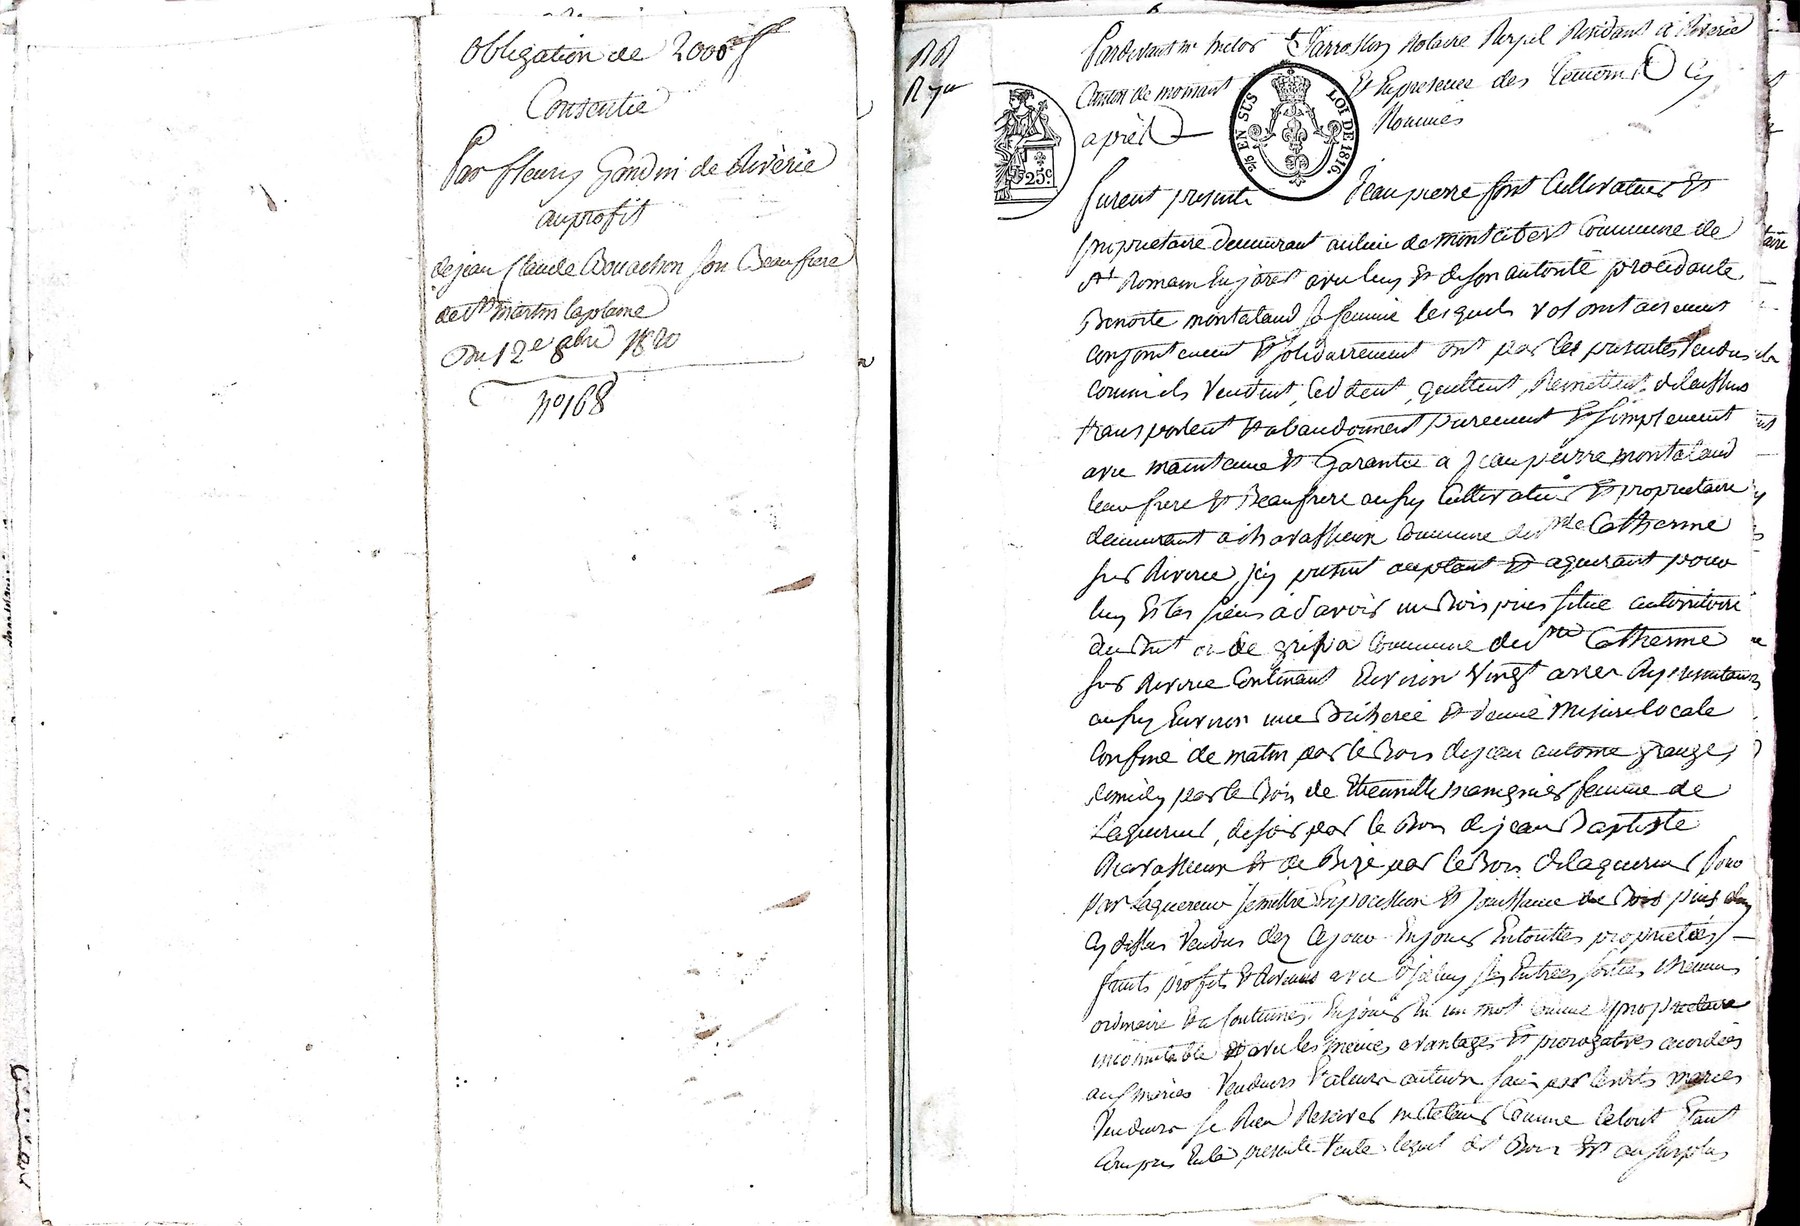 Obligation de 2000 f
Consentie
Par fleury Gondin de Riverie
au profit
de jean Claude Bouachon son Beaufrere
de St martin laplaine
Du 12e 8bre 1820
n° 168
Pardevant me Notaire Royal Residant à Riverie
Canton de mornant Et En presence des temoins Cy
après Nommés
25c.
EN SUS LOI DE 1816.
furent presents Jean pierre font Cultivateur Et
proprietaire demeurant au lieu de montcibert Commune de
St Romain En jarest avec luy Et de son autorité procedante
Benoite montaland sa femme lesquels volontairement
conjointement Et solidairement ont par les presentes vendus
comme ils vendent, Cedent, quittent, Remettent, delaissent
transportent Et abandonnent purement Et simplement
avec maintenue Et Garantie a Jean pierre montaland
leur frere Et Beaufrere aussy Cultivateur Et proprietaire
demeurant a chavasseux Commune de Ste Catherine
sur Riverie, jcy present acceptant Et aquerant pour
luy Et les siens a Savoir un Bois pins situé au territoire
du ou de gripa Commune de Ste Catherine
sur Riverie Contenant Environ vingt ares Representant
aussy Environ une Bicherée Et demie mesure locale
Confiné de matin par le Bois de jean antoine grange,
de midy par le Bois de Etiennette femme de
L'aquereur, de soir par le Bois de jean Baptiste
chavasseux Et de Bize par le Bois de laquereur pour
par Laquereur se mettre En possession Et jouissance de Bois pins
Cy dessus vendus dez Ce jour En jouir En touttes proprietés
fruits profits Et Revenus avec ses Entrées, sorties, chemins
ordinaire Et a Coutumés. En jouir En un mot Comme proprietaire
incomutable Et avec les memes avantages Et prerogatives accordées
aux mariés vendeurs par lesdits mariés
vendeurs se Rien Reserver ni Retenir Comme le tout Etant
Compris En la presente vente lequel dt Bois Est au surplus